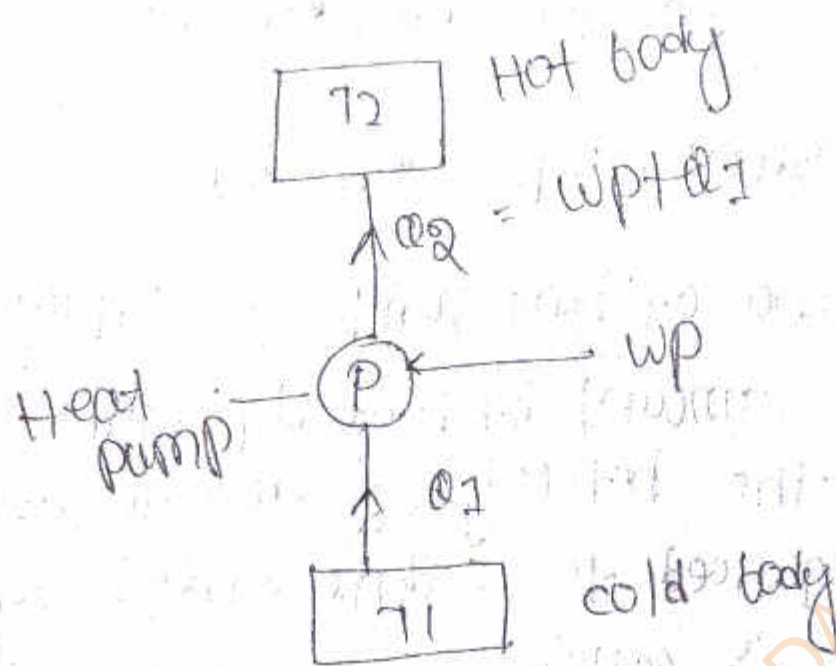 T2
Hot body
Q2 = Wp+Q1
P
Wp
Heat
pump
Q1
T1
cold body